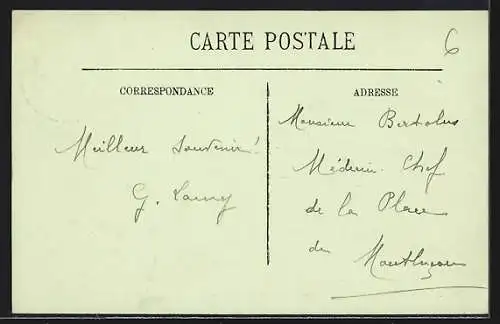 CARTE POSTALE
6
CORRESPONDANCE
Meilleur souvenir!
G.
ADRESSE
Monsieur Bertolus
Médecin Chef
de la Place
de Montluçon